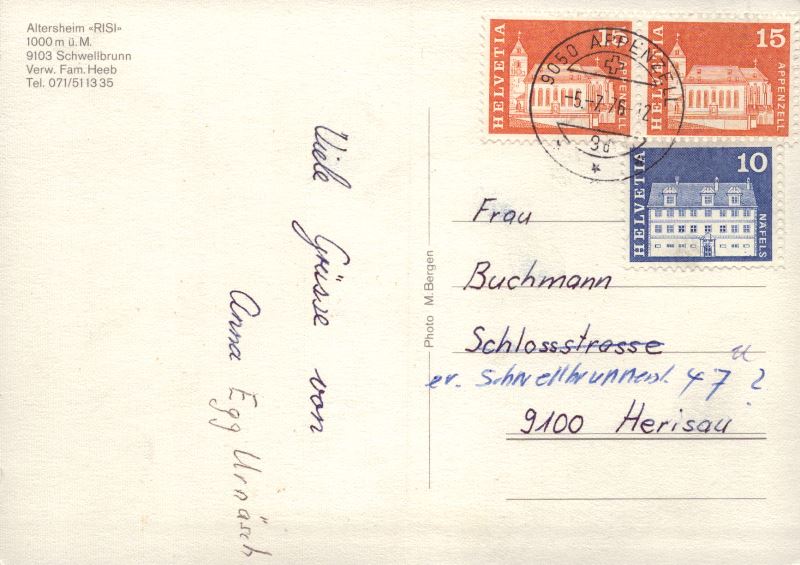 Altersheim «RISI»
1000 m ü. M.
9103 Schwellbrunn
Verw. Fam. Heeb
Tel. 071/51 13 35
Viele Grüsse von
Anna Egg Urnäsch
Photo M. Bergen
HELVETIA 15 APPENZELL
HELVETIA 15 APPENZELL
9050 APPENZELL
-5.-7.76-12
9d
HELVETIA 10 NÄFELS
Frau
Buchmann
Schlossstrasse
ev. Schwellbrunnerst. 47 ?
9100 Herisau